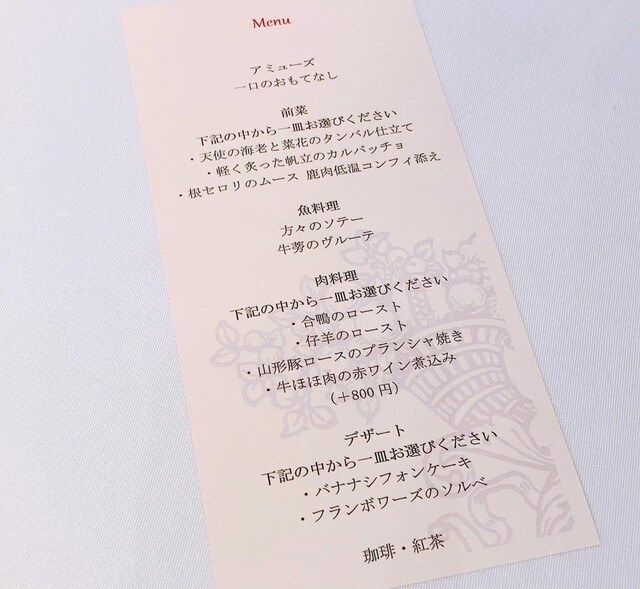 Menu
アミューズ
一口のおもてなし
前菜
下記の中から一皿お選びください
・天使の海老と菜花のタンバル仕立て
・軽く炙った帆立のカルパッチョ
・根セロリのムース 鹿肉低温コンフィ添え
魚料理
方々のソテー
牛蒡のヴルーテ
肉料理
下記の中から一皿お選びください
・合鴨のロースト
・仔羊のロースト
・山形豚ロースのプランシャ焼き
・牛ほほ肉の赤ワイン煮込み
（＋800 円）
デザート
下記の中から一皿お選びください
・バナナシフォンケーキ
・フランボワーズのソルベ
珈琲・紅茶